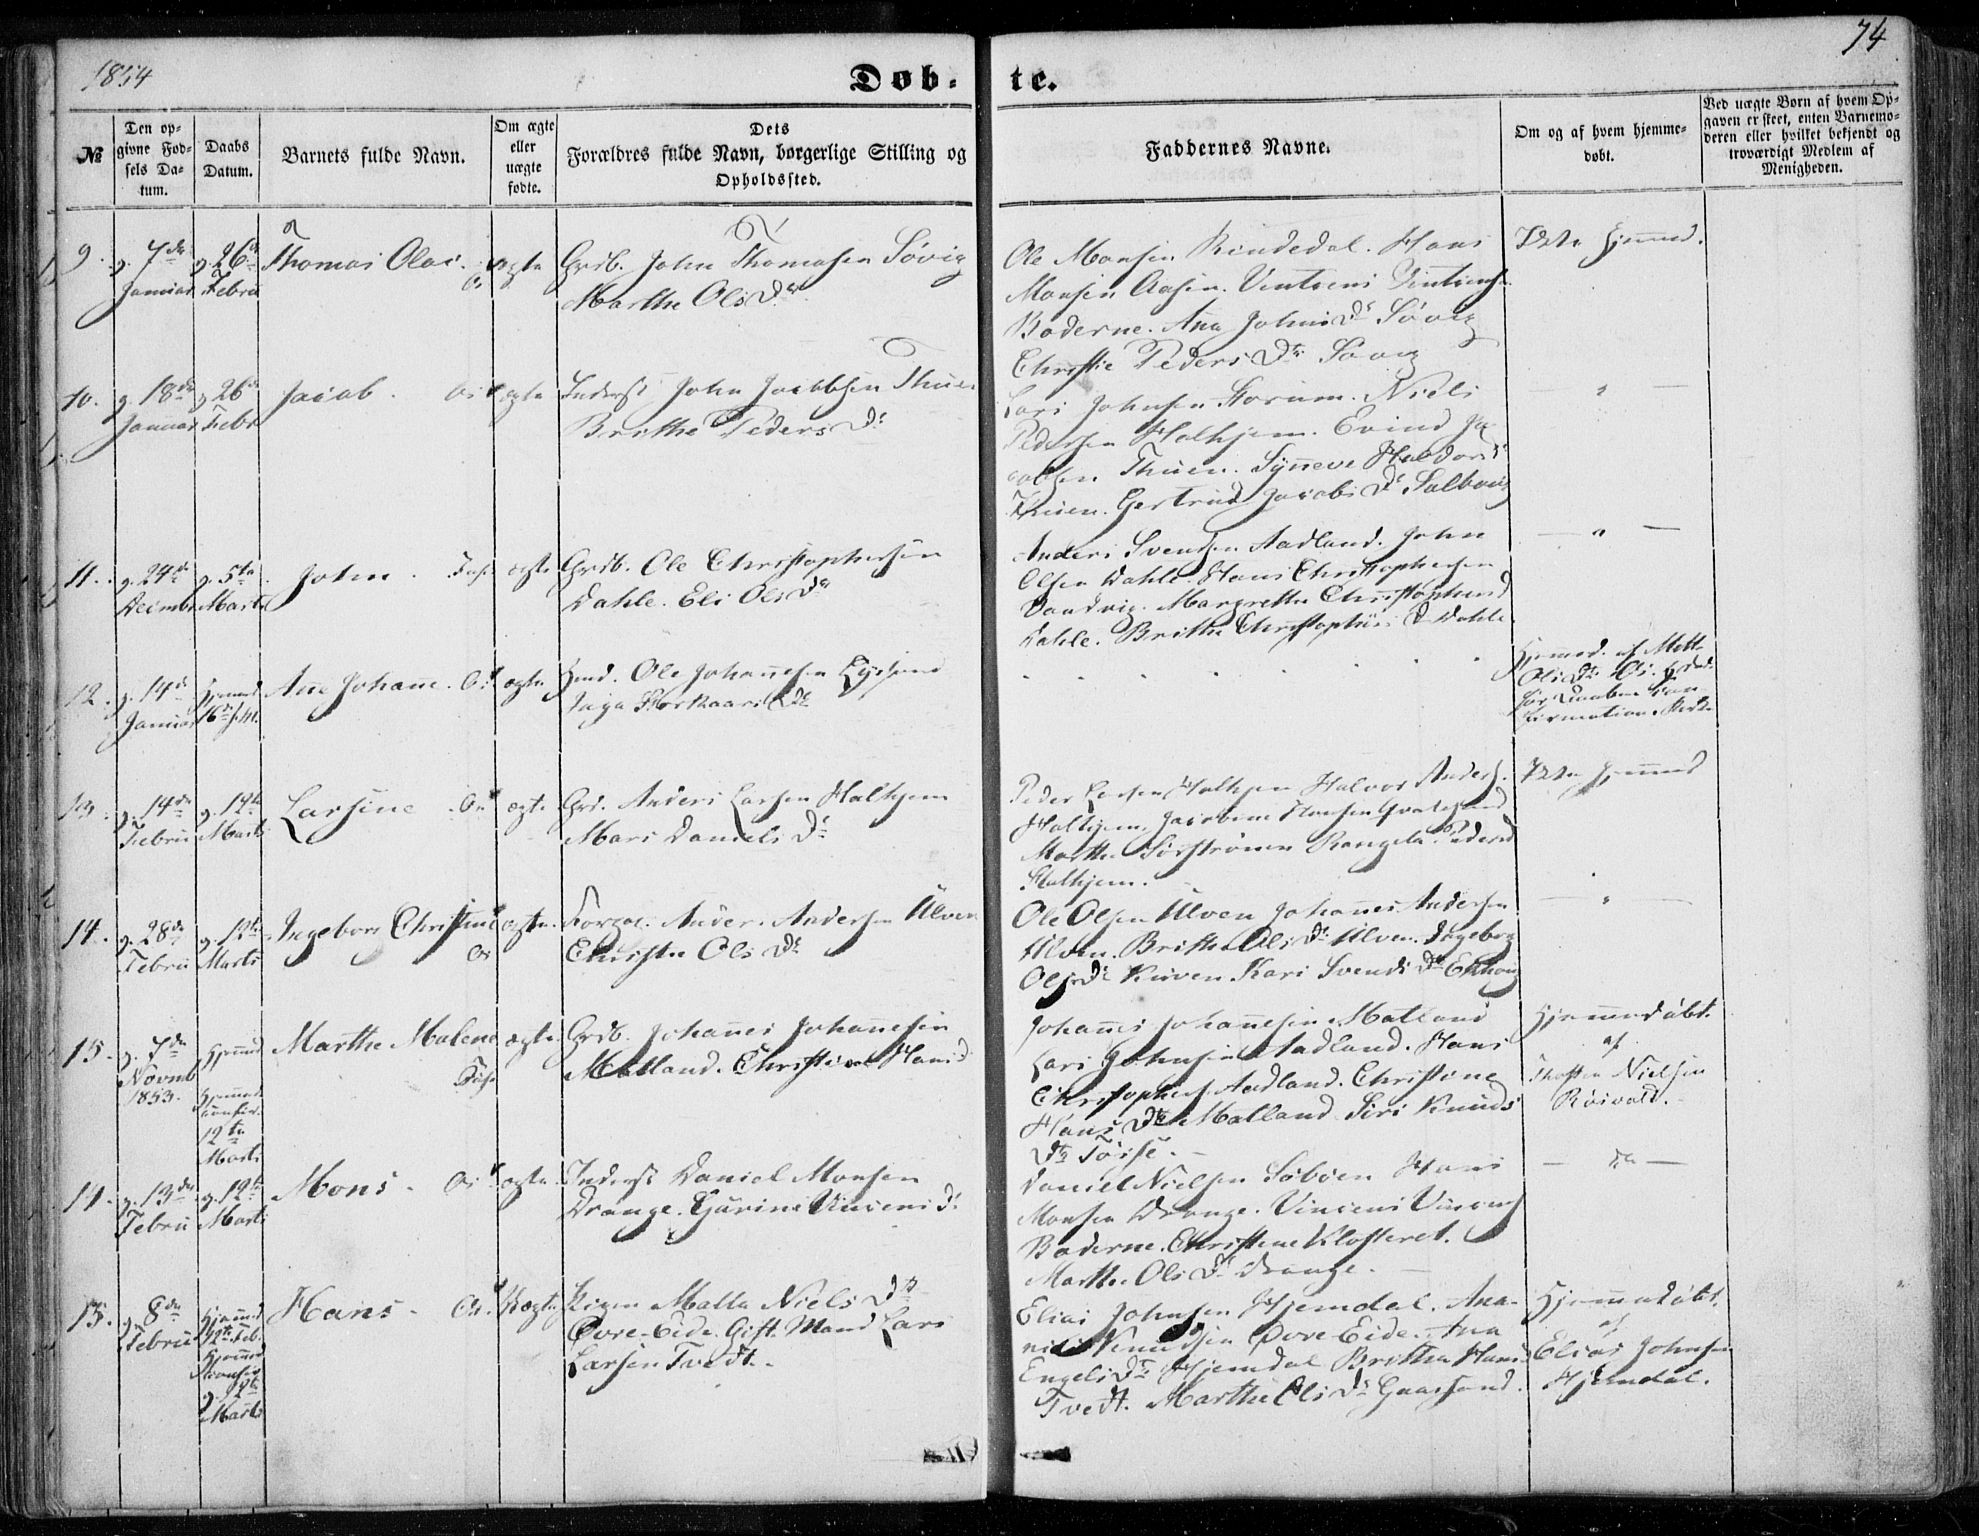 1854
74
Døb-
te.
No
Den op-
givne Fød-
sels Da-
tum.
Daabs
Datum.
Barnets fulde Navn.
Om ægte
eller
uægte
fødte.
Dets
Forældres fulde Navn, borgerlige Stilling og
Opholdssted.
Faddernes Navne.
Om og af hvem hjemme-
døbt.
Ved uægte Børn af hvem Op-
gaven er skeet, enten Barnemo-
deren eller hvilket bekjendt og
troværdigt Medlem af
Menigheden.
9. 7de
Januar
26de
Febru
Thomas Olai
Os ægte
Grdb. John Thomasen Søvig
Marthe Olsdr
Ole Monsen Rindedal. Hans
Monsen Aasen.
Boderne. Ana Johnsdr Søvig
Christie Pedersdtr Søvig
Ikke hjemmed.
10. 18de
Januar
26de
Febr
Jacob. Os ægte
Inderst John Jacobsen Thuen
Brithe Pedersdr
Lars Johnsen Storum. Niels
Pedersen Halhjem. Evind Ja-
cobsen Thuen. Synneve Haldorsd
Thuen. Gertrud Jacobsdr Solbaug
"
11. 24de
Decembr
5te
Marts
John. Fuse ægte
Grdb. Ole Christophersen
Dahle. Eli Olsdr
Anders Svendsen Aadland. John
Olsen Dahle. Hans Christophersen
Vandvig. Margrethe Christophersd
Dahle. Brithe Christophersdr Dahle
"
12. 14de
Januar
Hjemmed
16de
Ane Johane. Os ægte
Hmd. Ole Johannesen Lysefjord
Inga Korkaarsdr
Hjemmed. af Mette
Olsdtr Os. død
før Daabens Con-
firmation i Kirke
13. 14de
Febru
12te
Marts
Larsine Os ægte
Grd. Anders Larsen Halhjem
Mari Danielsdr
Peder Larsen Halhjem Halvor Anders.
Halhjem, Jacobine Hansen
Marthe Sørstrønen Rangela Pedersd
Halhjem.
Ikke hjemmed
14. 28de
Febru
12te
Marts
Ingebor Christine
Os ægte.
Anders Andersen Ulven
Christie Olsdr
Ole Olsen Ulven Johannes Andersen
Ulven. Brithe Olsdr Ulven. Ingeborg
Olsdr Kuven Kari Svendsdtr Ekhoug
"
15. 7de
Novmb
1853.
Hjemmed
Hjemmed
confir.
12te
Marts
Marthe Malene
Fuse ægte
Grdb. Johanes Johannesen
Malland. Christine Hansd
Johannes Johannesen Malland
Lars Johnsen Aadland. Hans
Christophers. Aadland. Christine
Hansdtr Malland Siri Knuds
Dtr Tøsse.
Hjemmedøbt
af
Thosten Nielsen
Røivold.
14. 13de
Febru
12te
Marts
Mons. Os ægte
Inderst Daniel Monsen
Drange. Gurine Vincensdr
Daniel Nielsen Søbøen Hans
Monsen Drange. Vincens Vincens
Boderne. Christine Klosteret.
Marthe Olsdr Drange.
— do —
15. 8de
Febru
Hjemmed
12te Feb.
Hjemmed
confir.
12te
Marts
Hans. Os. Uægte
Pigen Malla Nielsdtr
Øvre-Eide. Gift Mand Lars
Larsen Tvedt.
Elias Johnsen Hjemdal. Ana-
nias Knudsen Øvre Eide. Ana
Engelsdtr Hjemdal Brithe Hansd
Tvedt. Marthe Olsdr Gaassand.
Hjemmedøbt.
af
Elias Johnsen
Hjemdal.